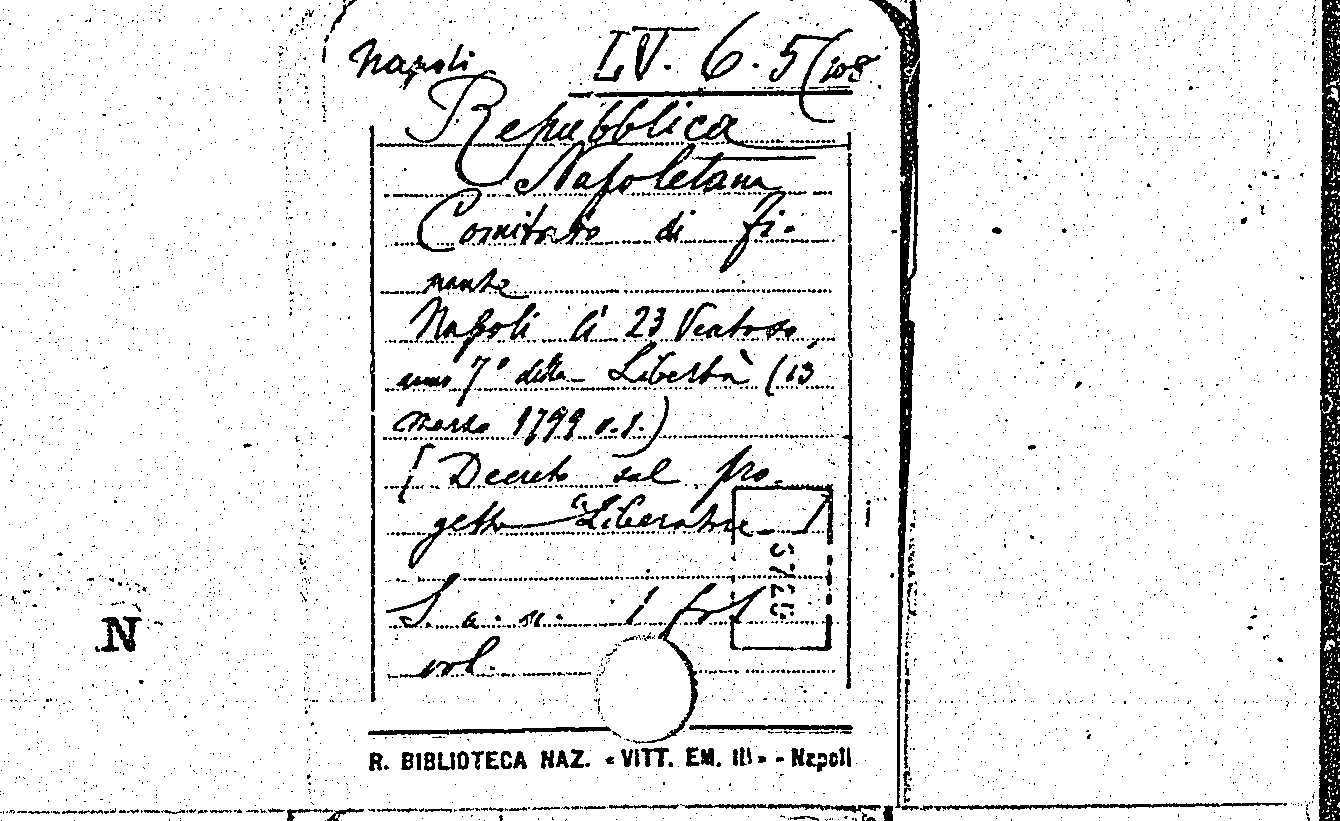 Napoli LV. 6. 5(108
Repubblica
Napoletana
Comitato di fi-
nanze
Napoli lì 23 Ventoso,
anno 7° della Libertà (13
marzo 1799 v.s.)
[Decreto sul pro-
getto "Liberatorie"]
S. a. n. 1 fol
vol.
N
R. BIBLIOTECA NAZ. «VITT. EM. III» - Napoli